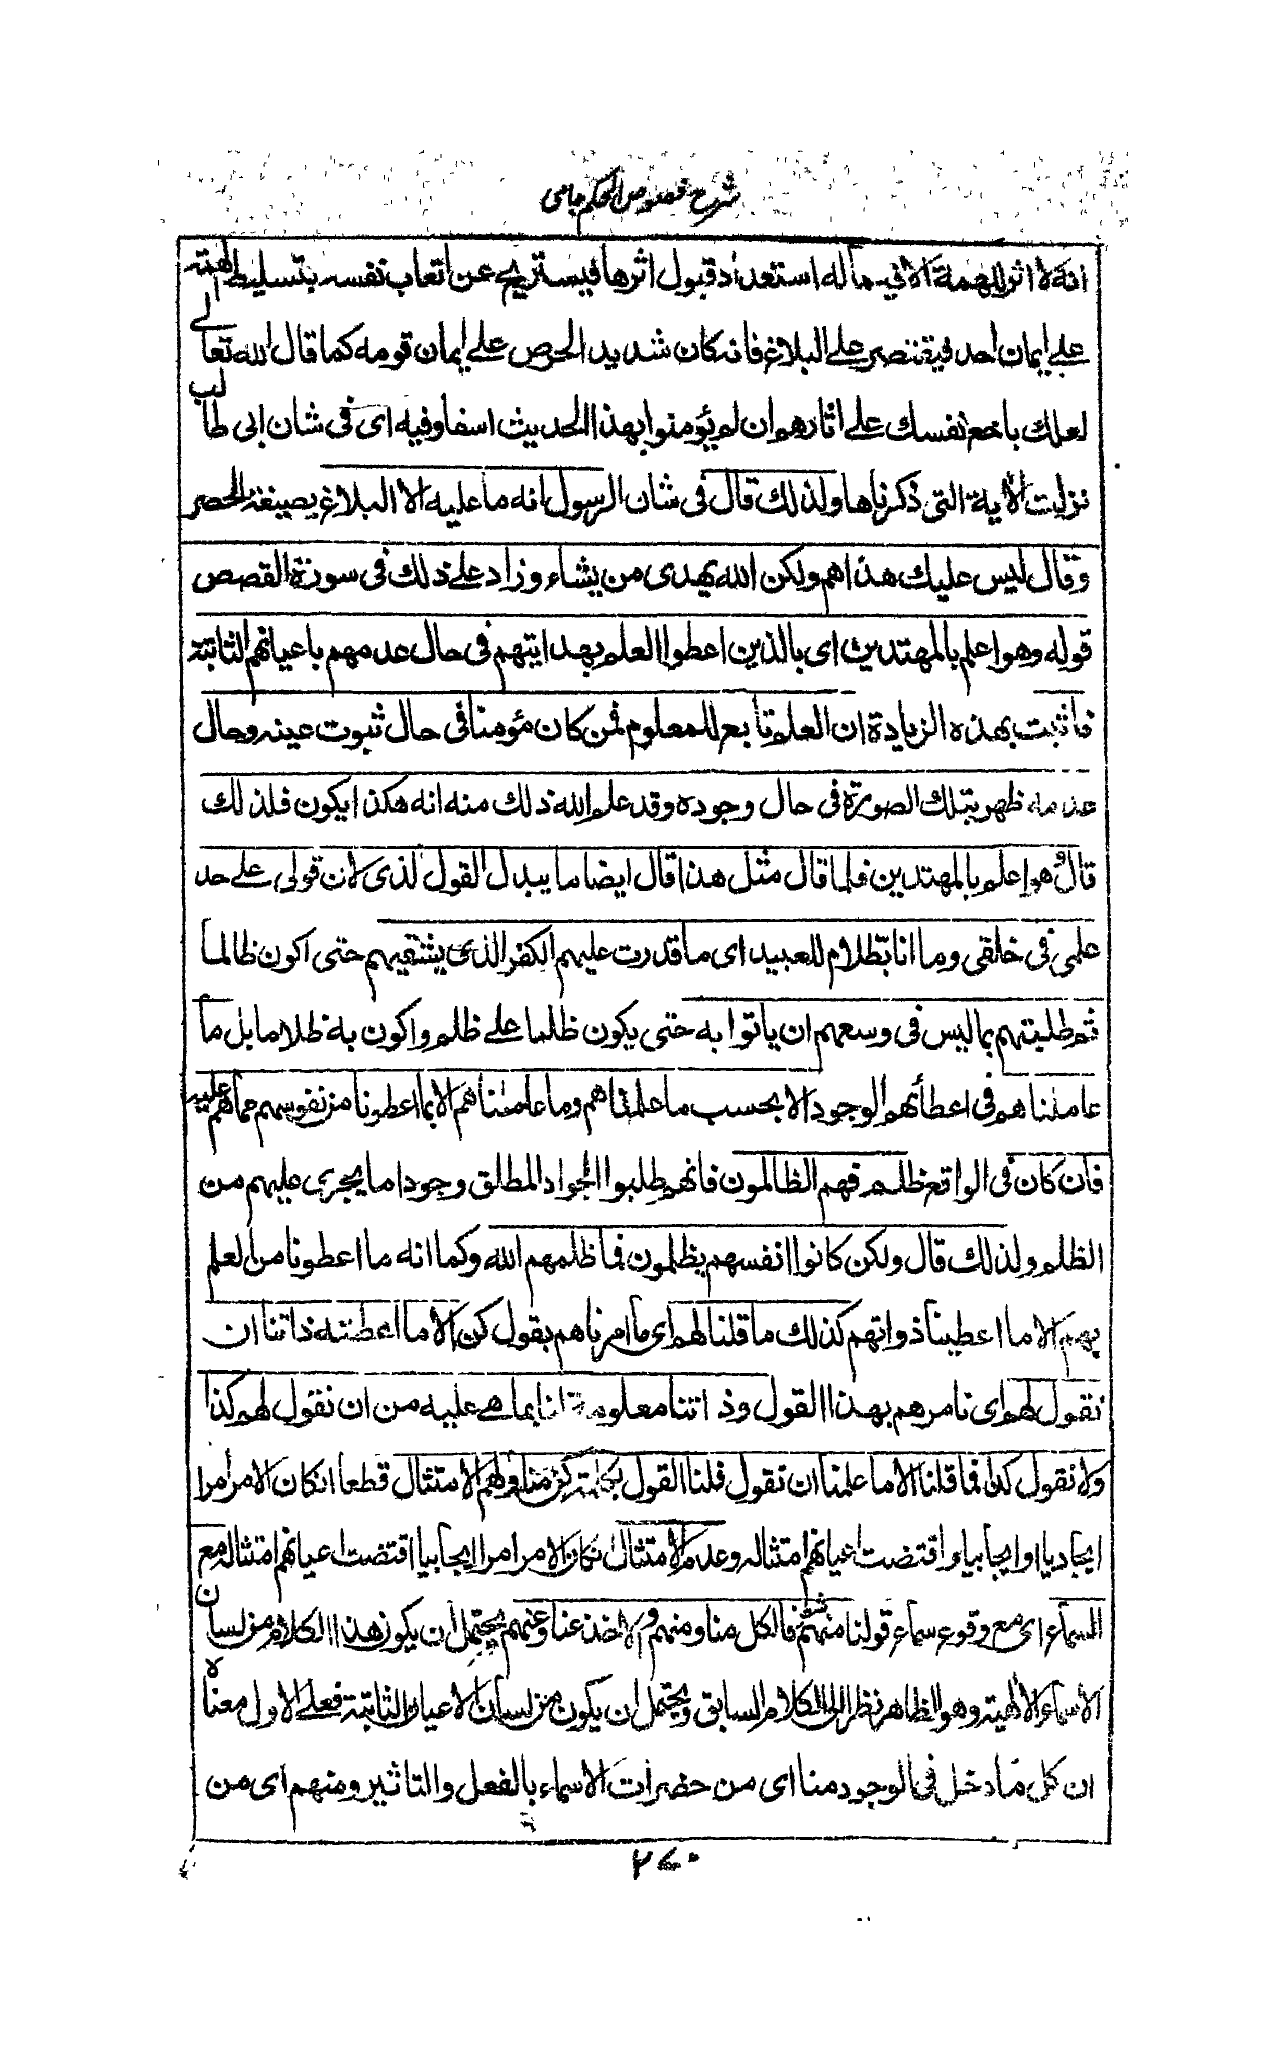 شرح فصوص الحكم جامی
انه لا اثر للهمة الا فى ماله استعداد قبول اثرها فيستريح عن اتعاب نفسه بتسليط الهمة
على ايمان احد فيقتصر على البلاغ فانه كان شديد الحرص على ايمان قومه كما قال الله تعالى
لعلك باخع نفسك على اثارهم ان لم يؤمنوا بهذا الحديث اسفا وفيه اى فى شان ابى طالب
نزلت الأية التى ذكرناها ولذلك قال فى شان الرسول انه ما عليه الا البلاغ بصيغة الحصر
وقال ليس عليك هداهم ولكن الله يهدى من يشاء وزاد على ذلك فى سورة القصص
قوله وهو اعلم بالمهتدين اى بالذين اعطوا العلم بهدايتهم فى حال عدمهم باعيانهم الثابتة
فاثبت بهذه الزيادة ان العلم تابع للمعلوم فمن كان مؤمنا فى حال ثبوت عينه وحال
عدمه ظهر بتلك الصورة فى حال وجوده وقد علم الله ذلك منه انه هكذا يكون فلذلك
قال وهو اعلم بالمهتدين فلما قال مثل هذا قال ايضا ما يبدل القول لذى لان قولى على حد
علمى فى خلقى وما انا بظلام للعبيد اى ما قدرت عليهم الكفر الذى يشقيهم حتى اكون ظالما
ثم طلبتهم بما ليس فى وسعهم ان ياتوا به حتى يكون ظلما على ظلم واكون به ظلاما بل ما
عاملناهم فى اعطائهم الوجود الا بحسب ما علمناهم وما علمناهم الا بما اعطونا من نفوسهم مما هم عليه
فان كان فى الواقع ظلم فهم الظالمون فانهم طلبوا الجواد المطلق وجودا ما يجرى عليهم من
الظلم ولذلك قال ولكن كانوا انفسهم يظلمون فما ظلمهم الله وكما انه ما اعطونا من العلم
بهم الا ما اعطيتنا ذواتهم كذلك ما قلنا لهم اى ما امرناهم بقول كن الا ما اعطته ذاتنا ان
نقول لهم اى نامرهم بهذا القول وذاتنا معلومة لنا بما هى عليه من ان نقول لهم كذا
ولا نقول كذا فما قلنا الا ما علمنا ان نقول فلنا القول بكلمة كن منا ولهم الامتثال قطعا ان كان الامر امرا
ايجاديا او ايجابيا واقتضت اعيانهم امتثاله وعدم الامتثال ان كان الامر امرا ايجابيا اقتضت اعيانهم امتثاله مع
السماع اى مع وقوع سماع قولنا منهم شعر فالكل منا ومنهم والاخذ عنا وعنهم يحتمل ان يكون هذا الكلام من لسان
الاسماء الالهية وهو الظاهر نظرا الى الكلام السابق ويحتمل ان يكون من لسان الاعيان الثابتة فعلى الاول معناه
ان كل ما دخل فى الوجود منا اى من حضرات الاسماء بالفعل والتاثير ومنهم اى من
٢٧٠